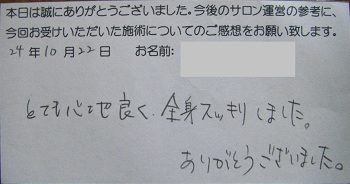 本日は誠にありがとうございました。今後のサロン運営の参考に、
今回お受けいただいた施術についてのご感想をお願い致します。
24年10月22日 お名前:
とても心地良く、全身スッキリしました。
ありがとうございました。